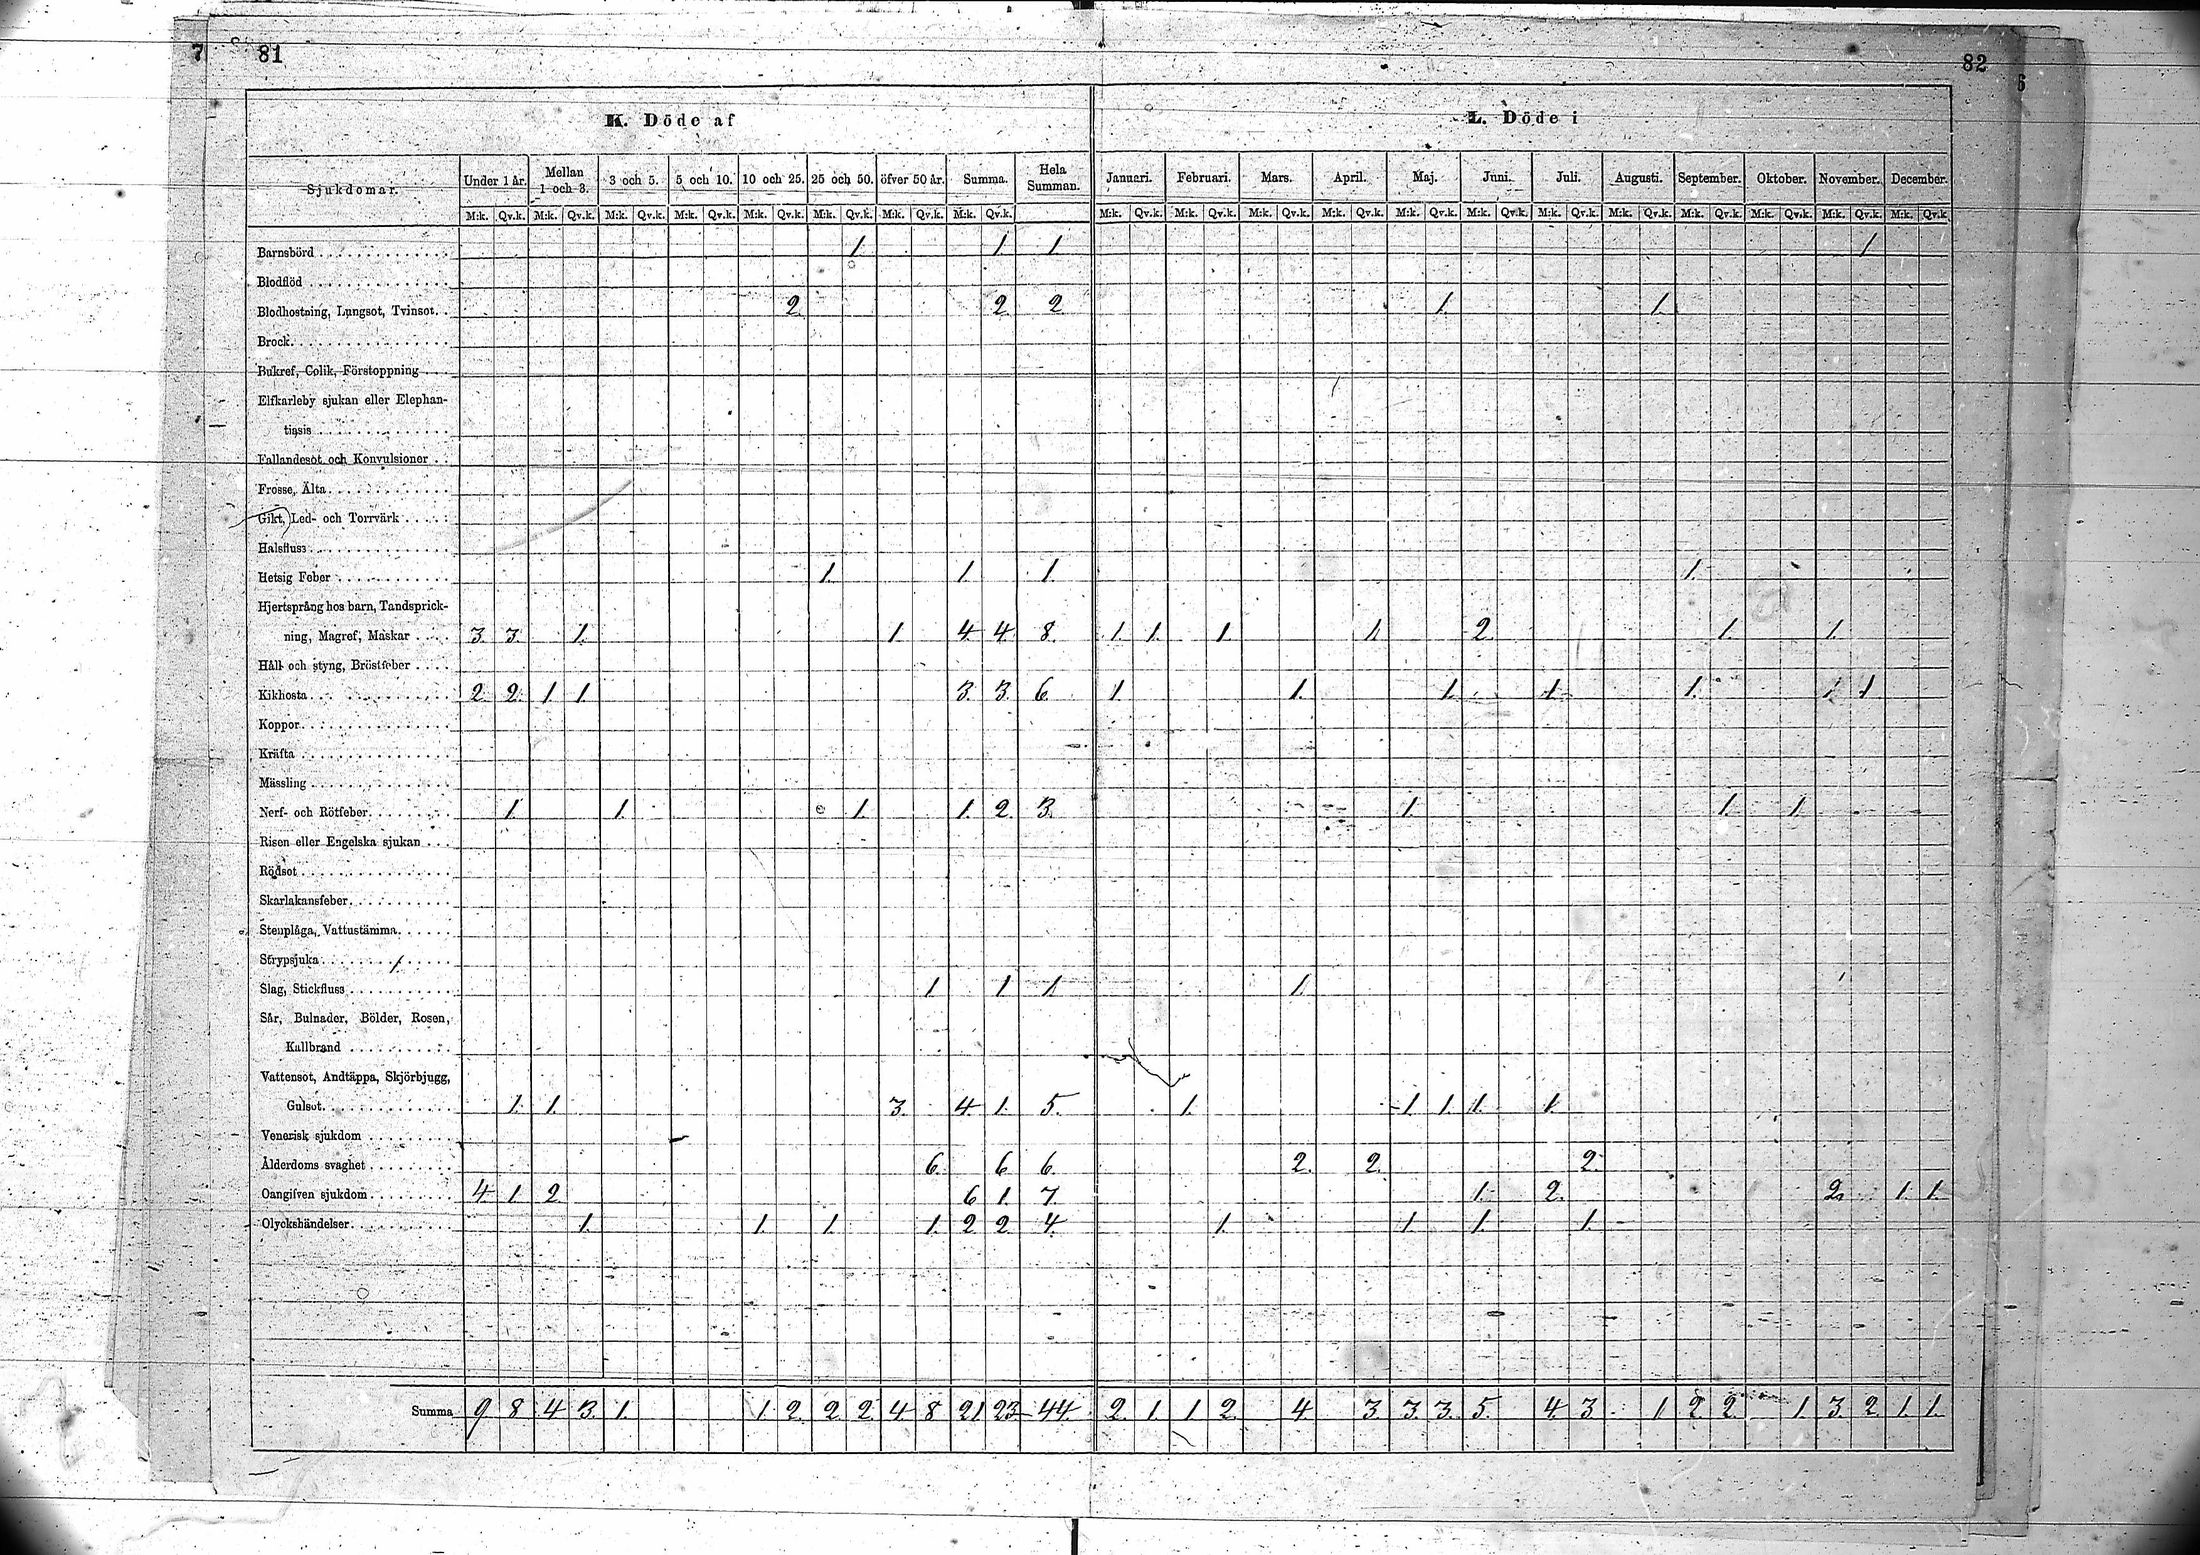 7 81
82
6
K. Döde af
L. Döde i
Sjukdomar. Under 1 år. Mellan 1 och 3. 3 och 5. 5 och 10. 10 och 25. 25 och 50. öfver 50 år. Summa. Hela Summan. Januari. Februari. Mars. April. Maj. Juni. Juli. Augusti. September. Oktober. November. December.
M:k. Qv.k. M:k. Qv.k. M:k. Qv.k. M:k. Qv.k. M:k. Qv.k. M:k. Qv.k. M:k. Qv.k. M:k. Qv.k. M:k. Qv.k. M:k. Qv.k. M:k. Qv.k. M:k. Qv.k. M:k. Qv.k. M:k. Qv.k. M:k. Qv.k. M:k. Qv.k. M:k. Qv.k. M:k. Qv.k. M:k. Qv.k. M:k. Qv.k.
Barnsbörd 1. 1. 1. 1
Blodflöd
Blodhostning, Lungsot, Tvinsot. 2. 2. 2. 1. 1.
Brock.
Bukref, Colik, Förstoppning
Elfkarleby sjukan eller Elephan-
tiasis
Fallandesot och Konvulsioner
Frosse, Älta
Gikt, Led- och Torrvärk
Halsfluss
Hetsig Feber 1. 1. 1. 1.
Hjertsprång hos barn, Tandsprick-
ning, Magref, Maskar 3. 3. 1. 1. 4. 4. 8. 1. 1. 1. 1. 2. 1. 1.
Håll och styng, Bröstfeber
Kikhosta 2. 2. 1. 1. 3. 3. 6. 1. 1. 1. 1. 1. 1. 1
Koppor
Kräfta
Mässling
Nerf- och Rötfeber 1. 1. 1. 1. 2. 3. 1. 1. 1.
Risen eller Engelska sjukan
Rödsot
Skarlakansfeber
Stenplåga, Vattustämma
Strypsjuka
Slag, Stickfluss 1. 1. 1. 1.
Sår, Bulnader, Bölder, Rosen,
Kallbrand
Vattensot, Andtäppa, Skjörbjugg,
Gulsot. 1. 1. 3. 4. 1. 5. 1. 1. 1. 1. 1.
Venerisk sjukdom
Ålderdoms svaghet 6. 6. 6. 2. 2. 2.
Oangifven sjukdom 4. 1. 2. 6. 1. 7. 1. 2. 2. 1. 1.
Olyckshändelser 1. 1. 1. 1. 2. 2. 4. 1. 1. 1. 1.
Summa 9. 8. 4. 3. 1. 1. 2. 2. 2. 4. 8. 21. 23. 44. 2. 1. 1. 2. 4. 3. 3. 3. 5. 4. 3. 1. 2. 2. 1. 3. 2. 1. 1.